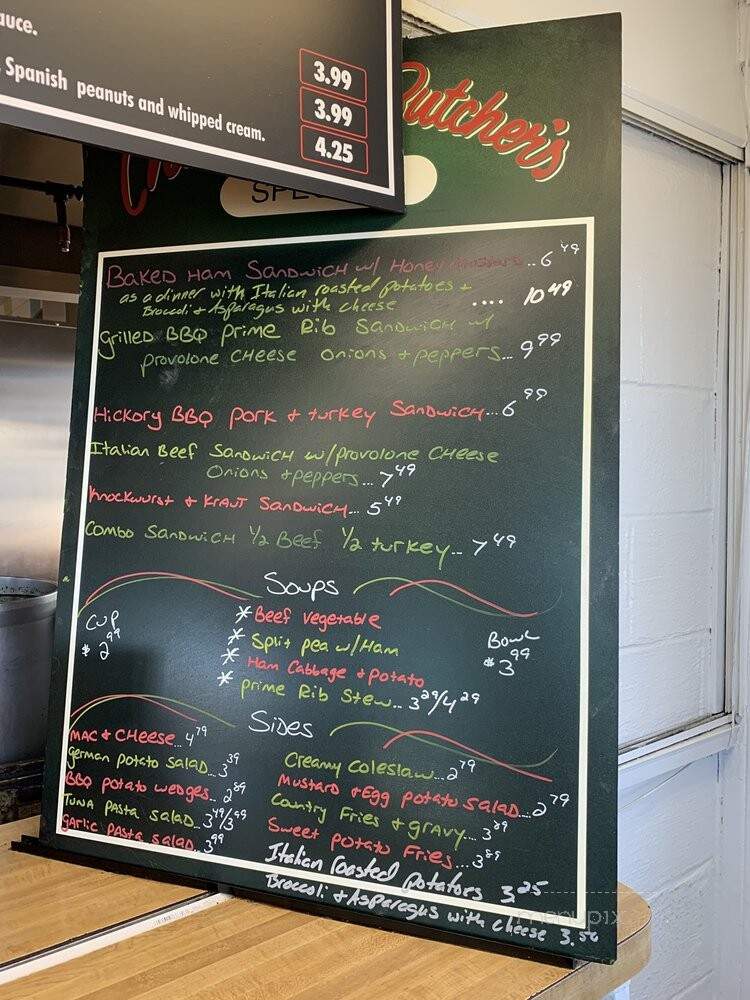 auce.
Spanish peanuts and whipped cream.
3.99
3.99
4.25
Butcher's
Baked Ham Sandwich w/ Honey Mustard...6 49
as a dinner with Italian roasted potatoes +
Broccoli + Asparagus with cheese .... 10 49
Grilled BBQ Prime Rib Sandwich w/
provolone Cheese Onions + peppers... 9 99
Hickory BBQ Pork + turkey Sandwich...6 99
Italian Beef Sandwich w/provolone Cheese
Onions + peppers... 7 49
Knockwurst + Kraut Sandwich... 5 49
Combo Sandwich 1/2 Beef 1/2 turkey... 7 49
Soups
Cup
$2 99
* Beef Vegetable
* Split pea w/Ham
* Ham Cabbage + potato
* prime Rib Stew... 3 29/4 29
Bowl
$3 99
Sides
Mac + Cheese...4 79
German potato Salad...3 39
BBQ potato wedges...2 89
Tuna Pasta Salad...3 49/3 99
Garlic Pasta Salad...3 99
Creamy Coleslaw...2 79
Mustard + Egg potato Salad...2 79
Country Fries + gravy...3 89
Sweet potato Fries...3 89
Italian roasted potatoes 3 25
Broccoli + Asparagus with cheese 3.50
menupix